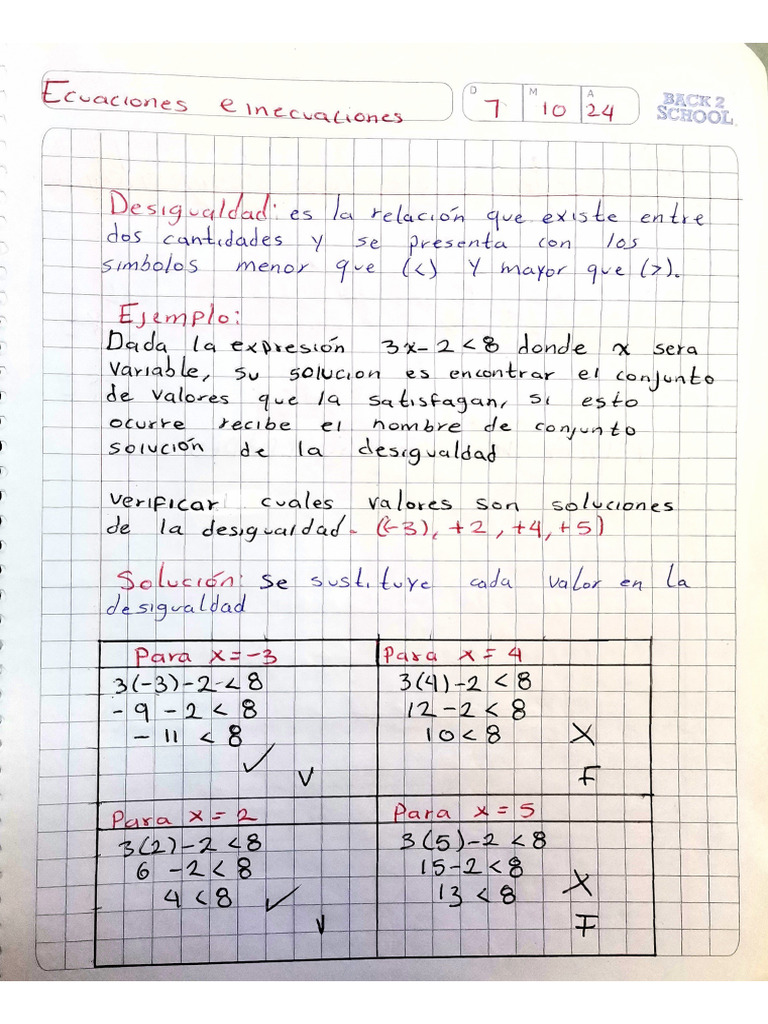 Ecuaciones e inecuaciones
D 7 M 10 A 24
BACK 2 SCHOOL
Desigualdad: es la relación que existe entre
dos cantidades y se presenta con los
simbolos menor que (<) y mayor que (>).
Ejemplo:
Dada la expresión 3x-2<8 donde x sera
variable, su solucion es encontrar el conjunto
de valores que la satisfagan, si esto
ocurre recibe el nombre de conjunto
solución de la desigualdad
verificar cuales valores son soluciones
de la desigualdad. (-3), +2, +4, +5)
Solución: Se sustituye cada valor en la
desigualdad
Para x=-3
3(-3)-2<8
-9-2<8
-11<8 ✓
V
Para x=4
3(4)-2<8
12-2<8
10<8 X
F
Para x=2
3(2)-2<8
6-2<8
4<8 ✓
V
Para x=5
3(5)-2<8
15-2<8
13<8 X
F